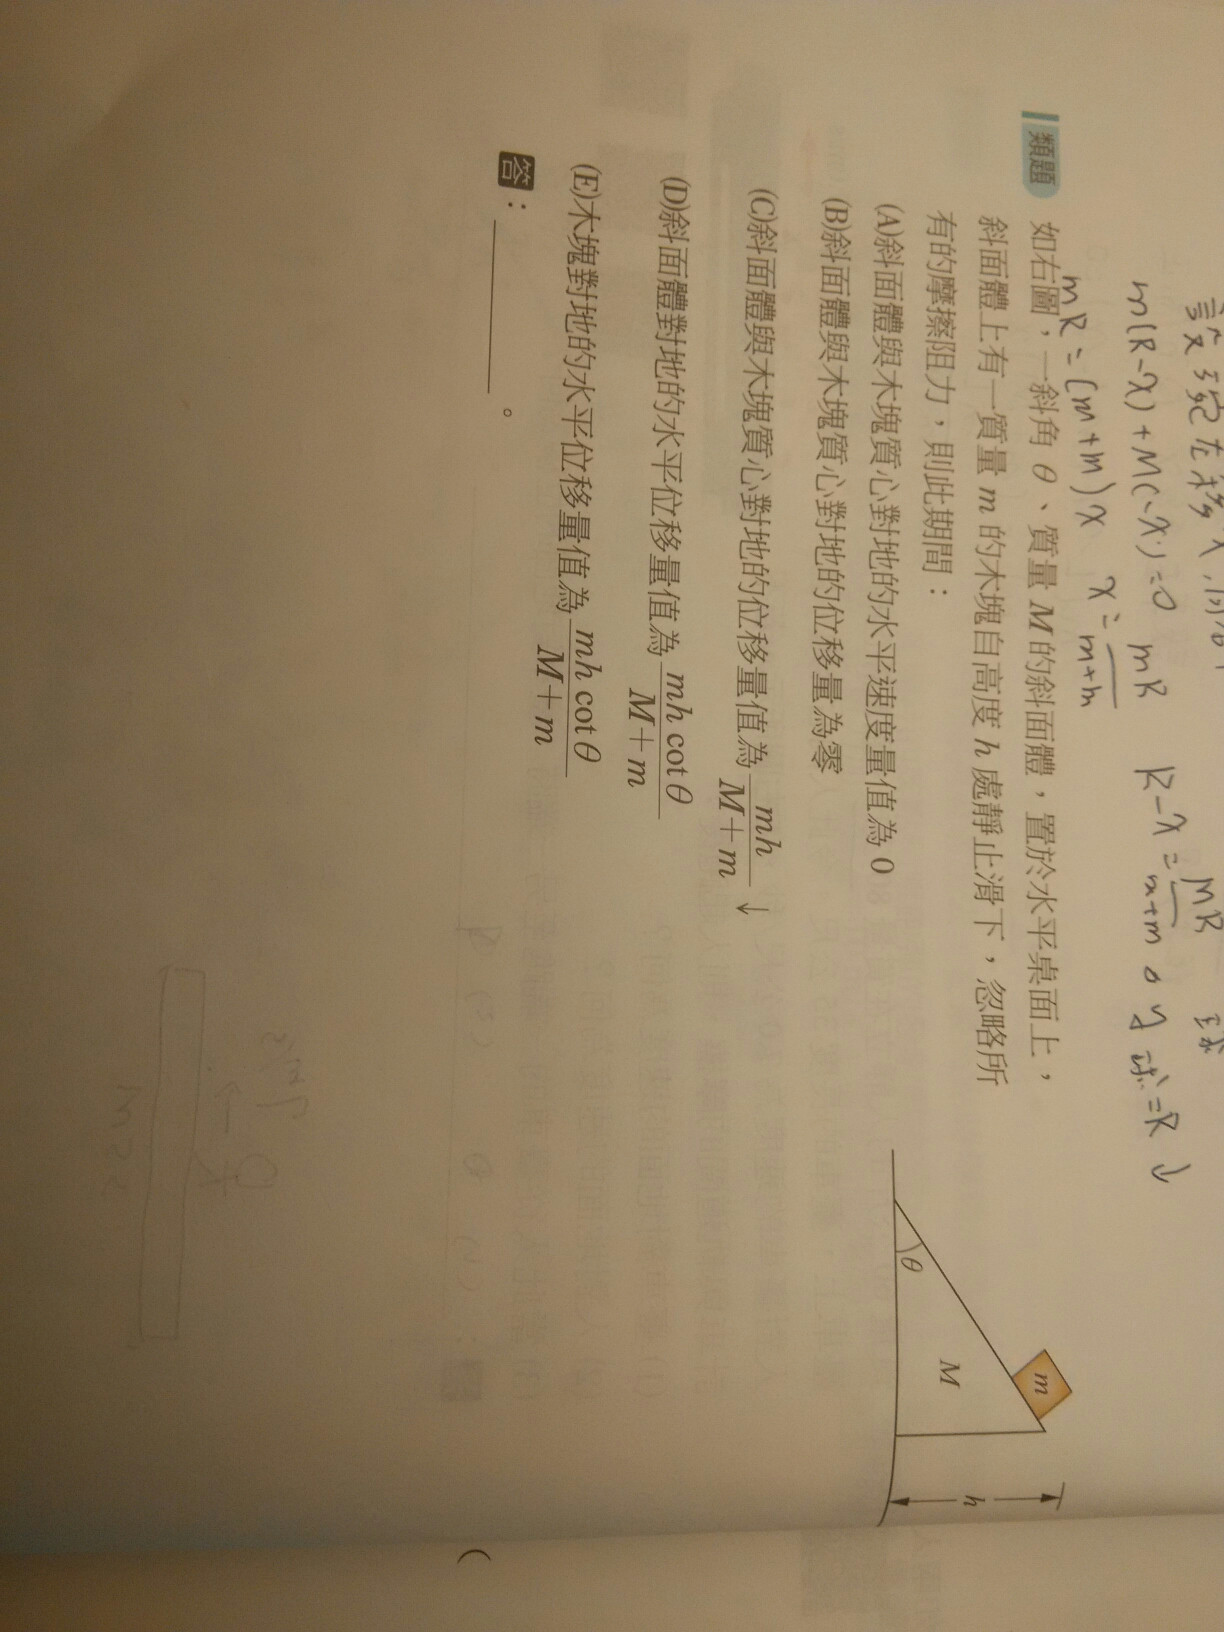 言
m(R-x)+M(-x)=0 mR MR
R-x= m+m y球=R↓
mR=(m+m)x x= m+m
類題 如右圖，一斜角θ、質量M的斜面體，置於水平桌面上，
斜面體上有一質量m的木塊自高度h處靜止滑下，忽略所
有的摩擦阻力，則此期間：
(A)斜面體與木塊質心對地的水平速度量值為0
(B)斜面體與木塊質心對地的位移量為零
(C)斜面體與木塊質心對地的位移量值為 mh/M+m ↓
(D)斜面體對地的水平位移量值為 mh cotθ/M+m
(E)木塊對地的水平位移量值為 mh cotθ/M+m
答：________。
m
M
θ
h